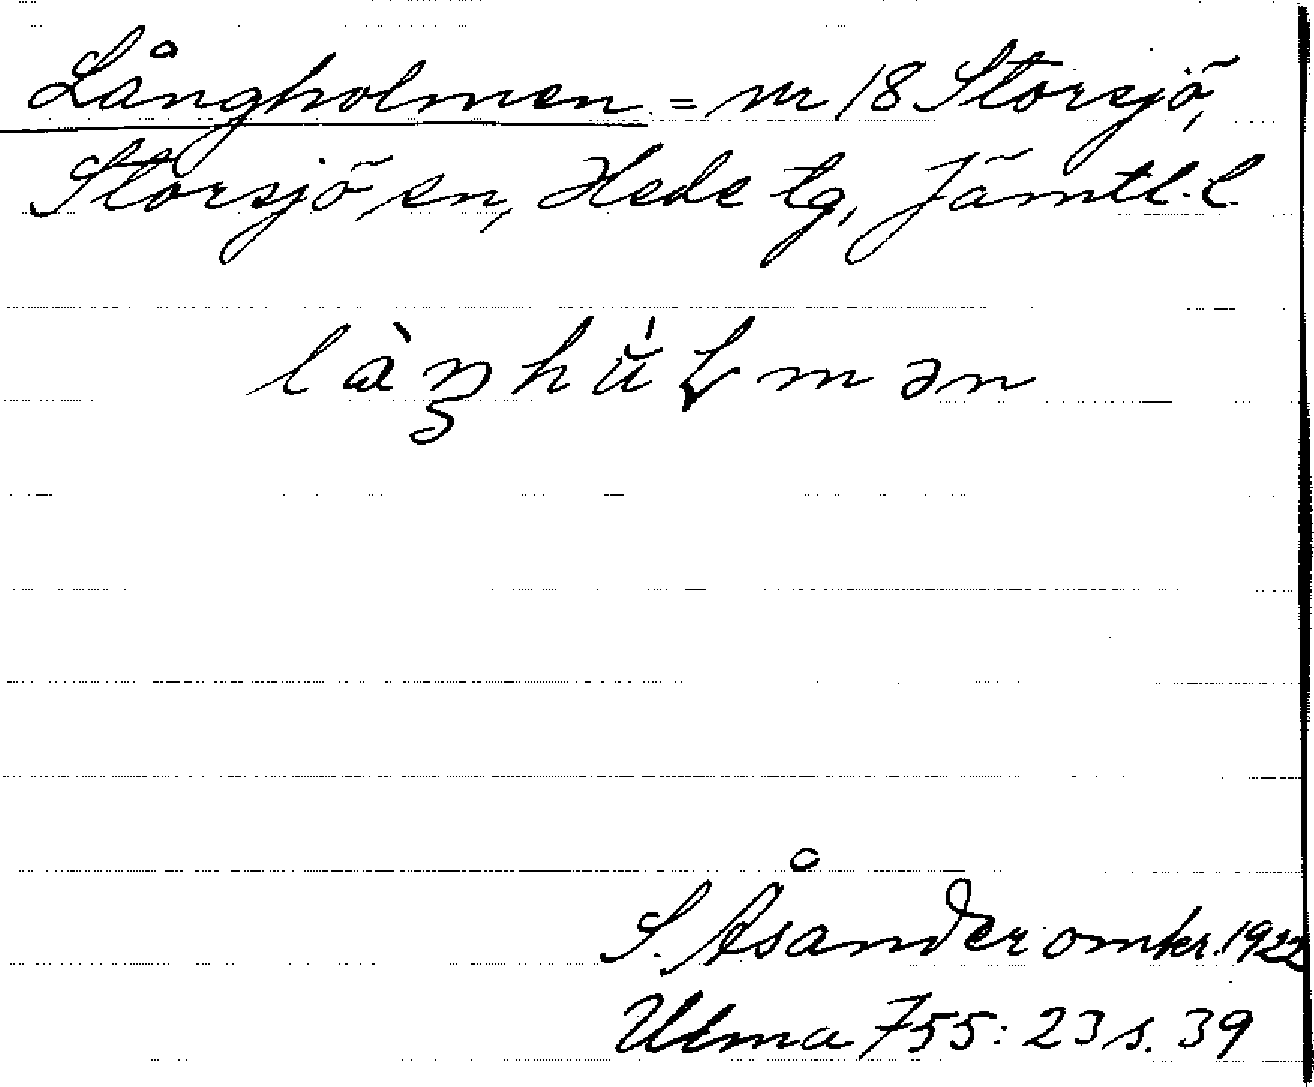 Långholmen = nr 18 Storsjö,
Storsjö sn, Hede tg, Jämtl. l.
làŋhu̇̆Lmən
S. Åsander omkr. 1922
Ulma 755: 23 s. 39